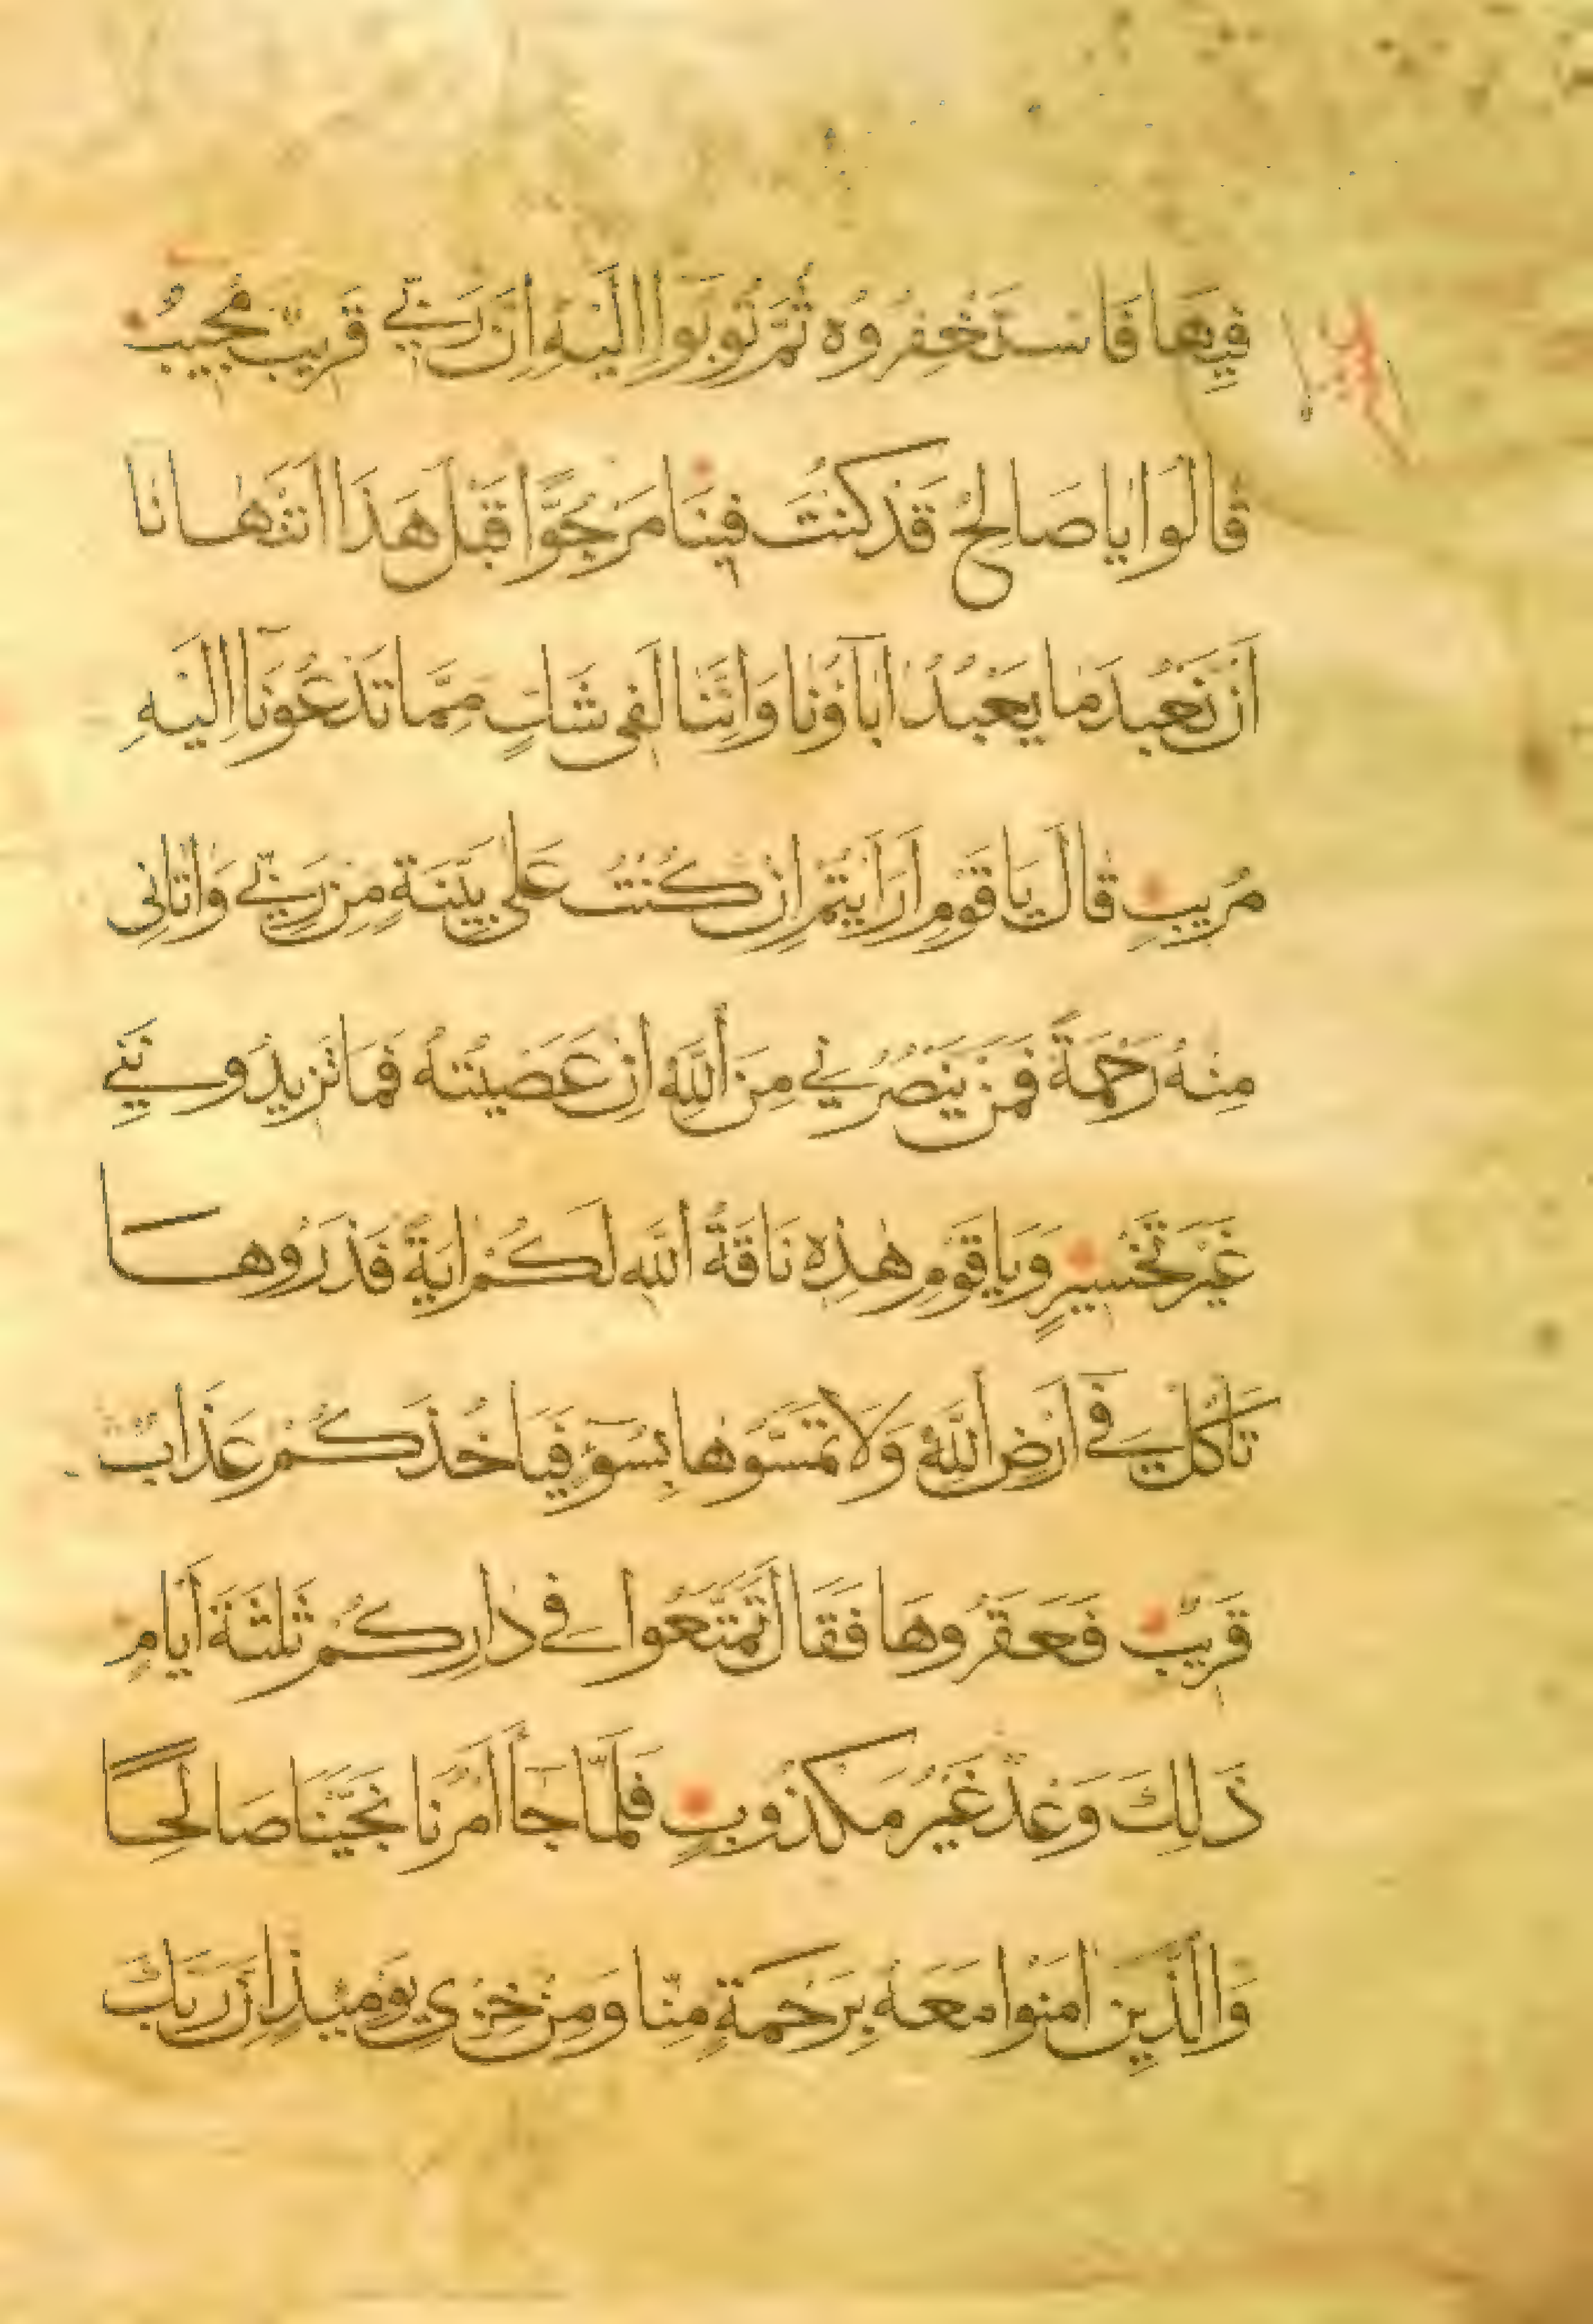 فِيهَا فَاسْتَغْفِرُوهُ ثُمَّ تُوبُوا اِلَيْهِ اِنَّ رَبِّي قَرِيبٌ مُجِيبٌ
قَالُوا يَا صَالِحُ قَدْ كُنْتَ فِينَا مَرْجُوًّا قَبْلَ هَذَا اَتَنْهَانَا
اَنْ نَعْبُدَ مَا يَعْبُدُ ابَآؤُنَا وَاِنَّنَا لَفِى شَكٍّ مِمَّا تَدْعُونَآ اِلَيْهِ
مُرِيبٍ قَالَ يَا قَوْمِ اَرَاَيْتُمْ اِنْ كُنْتُ عَلَى بَيِّنَةٍ مِنْ رَبِّي وَاتَانِى
مِنْهُ رَحْمَةً فَمَنْ يَنْصُرُنِي مِنَ اللَّهِ اِنْ عَصَيْتُهُ فَمَا تَزِيدُونَنِي
غَيْرَ تَخْسِيرٍ وَيَا قَوْمِ هٰذِهِ نَاقَةُ اللَّهِ لَكُمْ ايَةً فَذَرُوهَا
تَاْكُلْ فِي اَرْضِ اللَّهِ وَلَا تَمَسُّوهَا بِسُوٓءٍ فَيَاْخُذَكُمْ عَذَابٌ
قَرِيبٌ فَعَقَرُوهَا فَقَالَ تَمَتَّعُوا فِي دَارِكُمْ ثَلٰثَةَ اَيَّامٍ
ذَلِكَ وَعْدٌ غَيْرُ مَكْذُوبٍ فَلَمَّا جَآءَ اَمْرُنَا نَجَّيْنَا صَالِحًا
وَالَّذِينَ امَنُوا مَعَهُ بِرَحْمَةٍ مِنَّا وَمِنْ خِزْيِ يَوْمِئِذٍ اِنَّ رَبَّكَ